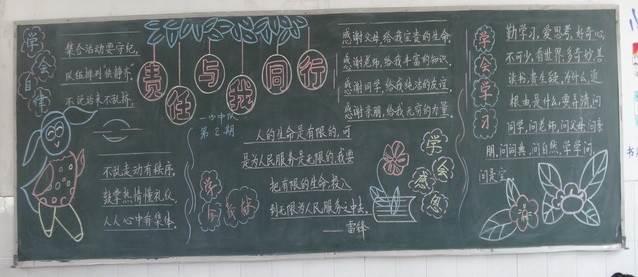 学会自律
集合活动要守纪,
队伍排列"快静齐"
不说话来不乱挤。
不乱走动有秩序,
鼓掌热情懂礼仪,
人人心中有集体。
责任与我同行
第2期
人的生命是有限的,可
是为人民服务是无限的,我要
把有限的生命,投入
到无限的为人民服务之中去。
——雷锋
感谢父母,给我宝贵的生命
感谢老师,给我丰富的知识,
感谢同学,给我纯洁的友谊,
感谢亲朋,给我无穷的力量。
学会感恩
学会学习
勤学习,爱思考,好奇心,
不可少,看世界,多奇妙,善
读书,贵在疑,为什么,追
根由,是什么,要弄清,问
同学,问老师,问父母,问亲
朋,问词典,问自然,学学问,
问是宝